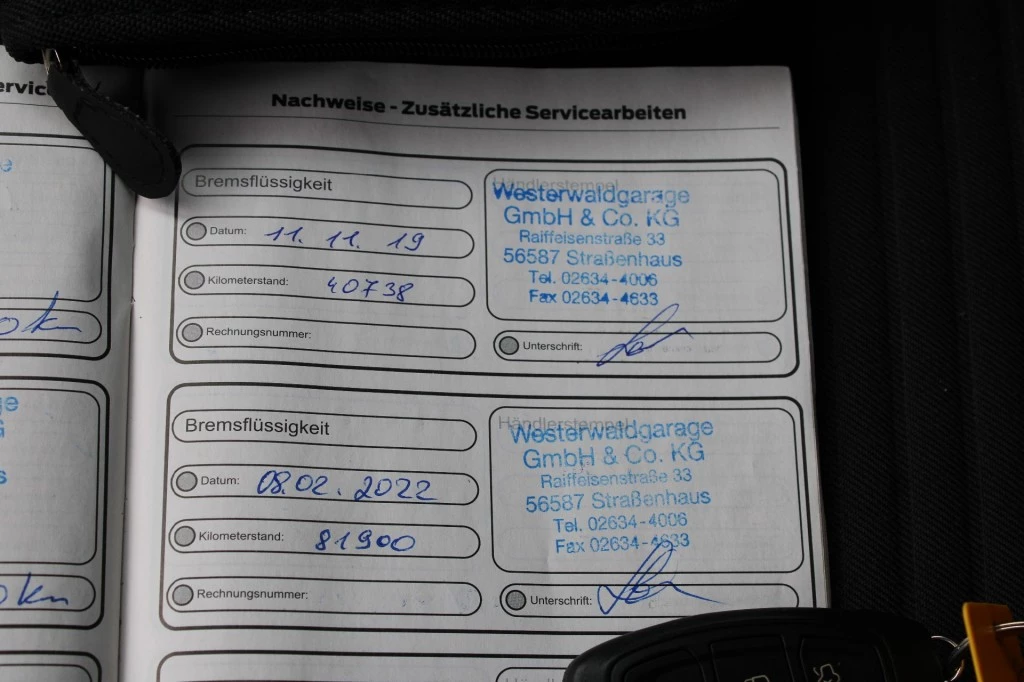 ervic
Nachweise - Zusätzliche Servicearbeiten
Bremsflüssigkeit
Datum: 11. 11. 19
Kilometerstand: 40738
Rechnungsnummer:
Händlerstempel
Westerwaldgarage
GmbH & Co. KG
Raiffeisenstraße 33
56587 Straßenhaus
Tel. 02634-4006
Fax 02634-4633
Unterschrift:
okm
Bremsflüssigkeit
Datum: 08.02.2022
Kilometerstand: 81900
Rechnungsnummer:
Händlerstempel
Westerwaldgarage
GmbH & Co. KG
Raiffeisenstraße 33
56587 Straßenhaus
Tel. 02634-4006
Fax 02634-4633
Unterschrift:
okm